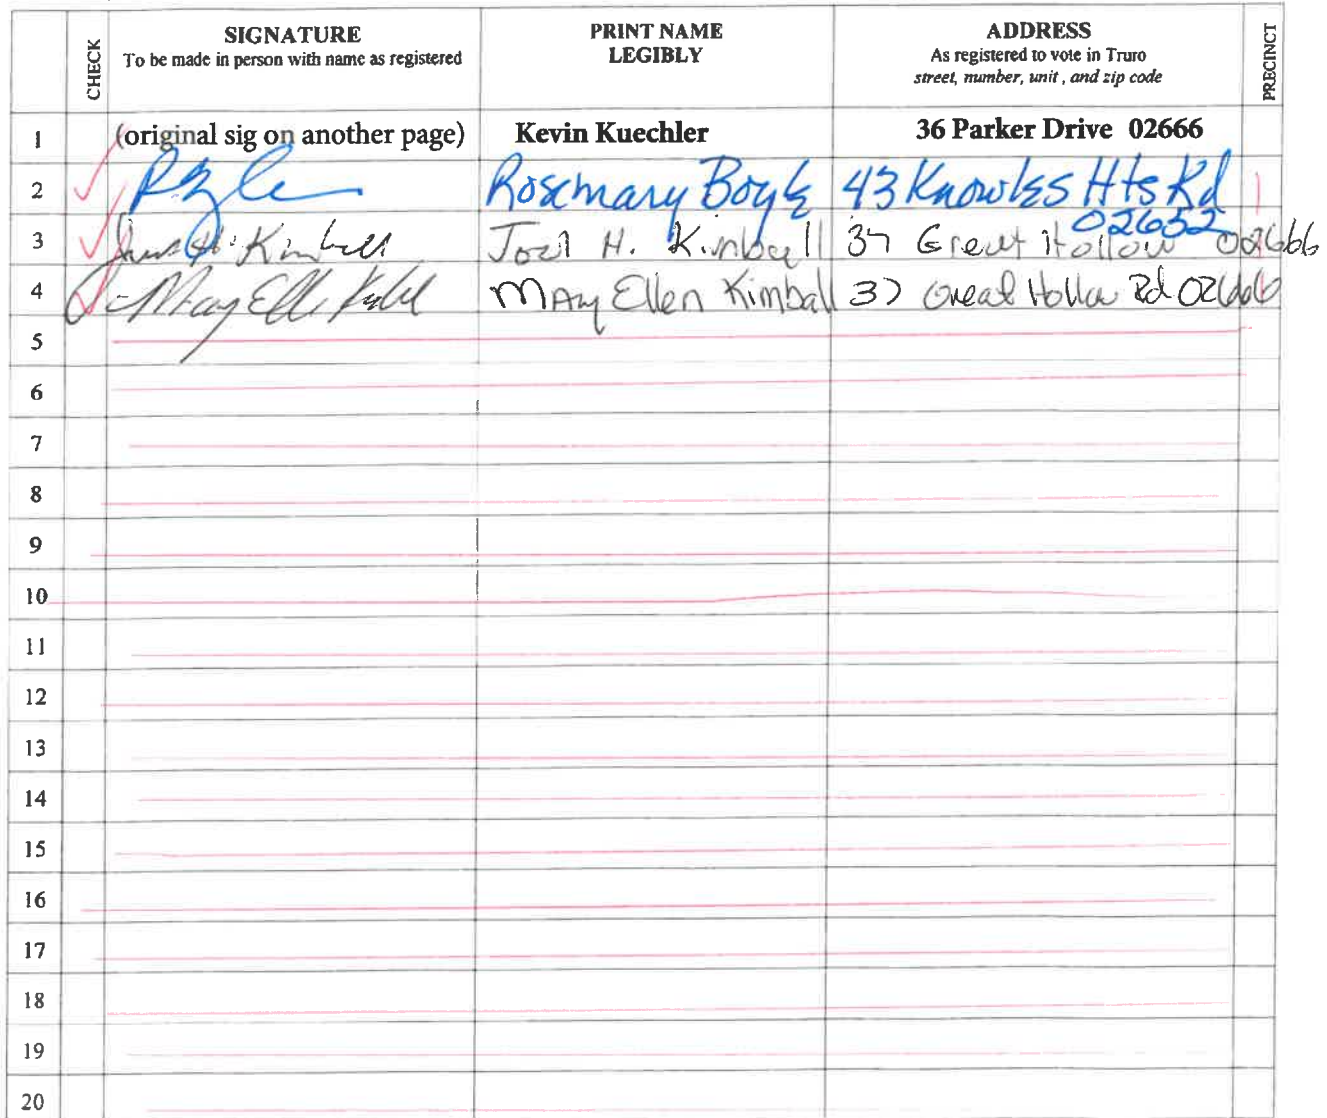 CHECK
SIGNATURE
To be made in person with name as registered
PRINT NAME
LEGIBLY
ADDRESS
As registered to vote in Truro
street, number, unit, and zip code
PRECINCT
1 (original sig on another page) Kevin Kuechler 36 Parker Drive 02666
2 Rosemary Boyle 43 Knowles Hts Rd
02652
3 Kimball Joel H. Kimball 37 Great Hollow 02666
4 Mary Ellen Kimball 37 Great Hollow Rd 02666
5
6
7
8
9
10
11
12
13
14
15
16
17
18
19
20